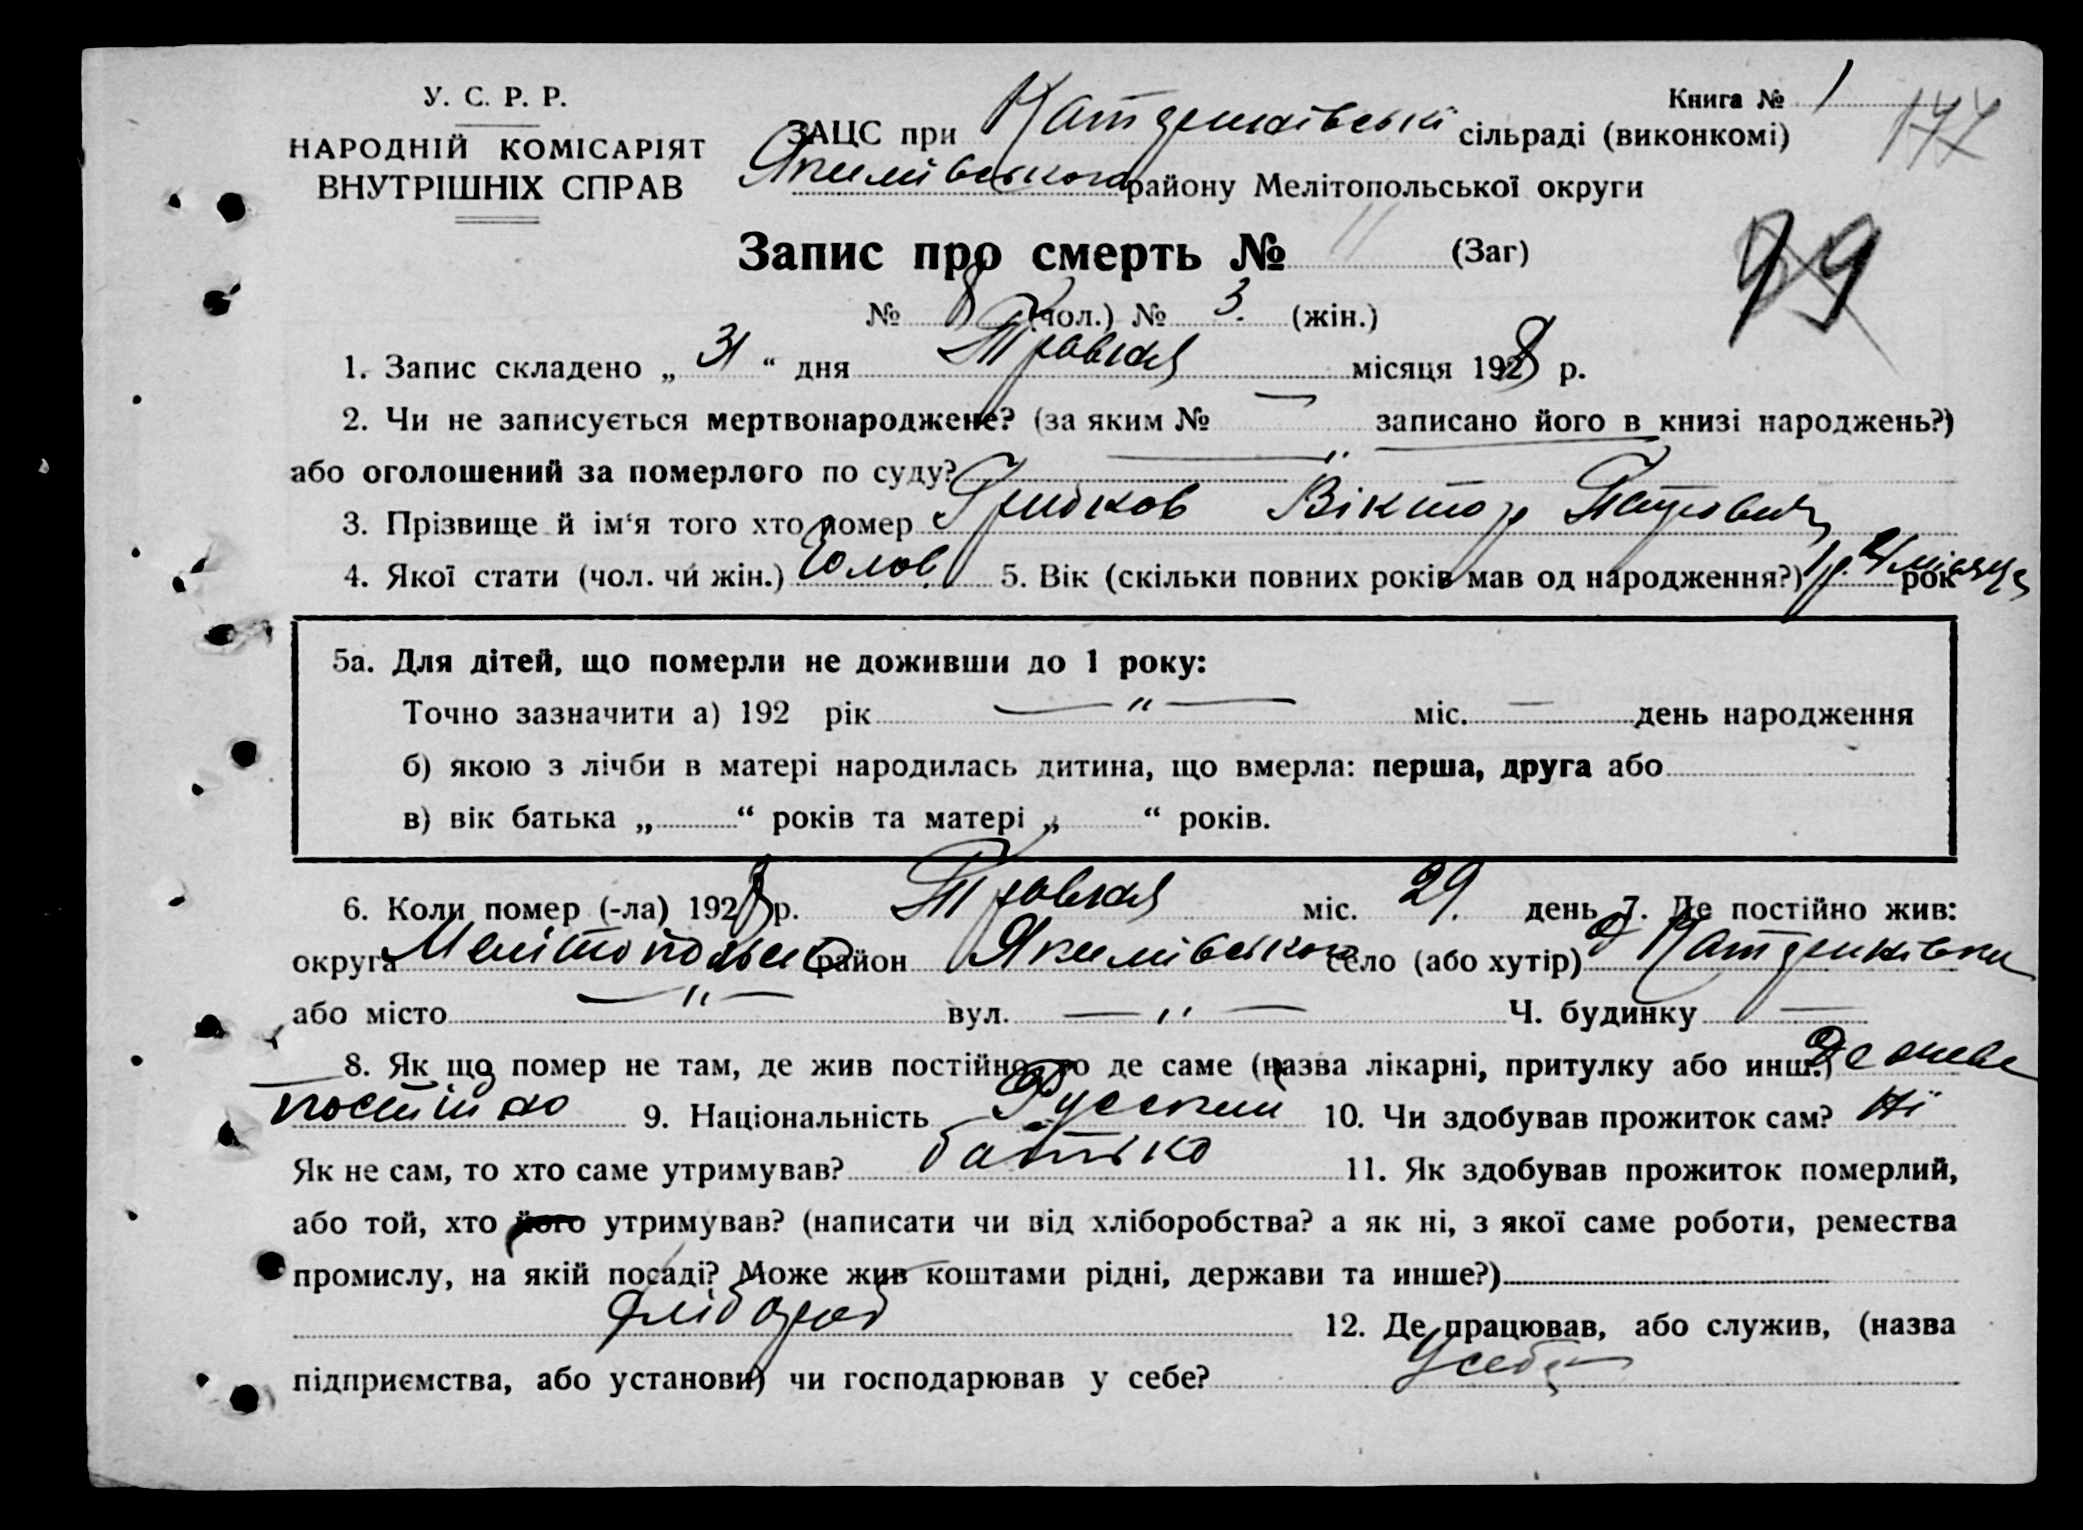 У. С. Р. Р.
НАРОДНІЙ КОМІСАРІЯТ
ВНУТРІШНІХ СПРАВ
Книга № 1
177
ЗАЦС при сільраді (виконкомі)
Якимівського району Мелітопольської округи
99
Запис про смерть № 11 (Заг)
№ 8 (чол.) № 3 (жін.)
1. Запис складено „ 31 “ дня Травня місяця 1928 р.
2. Чи не записується мертвонароджене? (за яким № — записано його в книзі народжень?)
або оголошений за померлого по суду? — „
3. Прізвище й ім‘я того хто помер Грибков Віктор Петрович
4. Якої стати (чол. чи жін.) Чолов. 5. Вік (скільки повних років мав од народження?) 1 р. 4 місяця рок
5а. Для дітей, що померли не доживши до 1 року:
Точно зазначити а) 192 рік — „ — міс. — день народження
б) якою з лічби в матері народилась дитина, що вмерла: перша, друга або
в) вік батька „ “ років та матері „ “ років.
6. Коли помер (-ла) 1928 р. Травня міс. 29. день 7. Де постійно жив:
округа Мелітопольськ район Якимівського село (або хутір)
або місто — „ — вул. — „ — Ч. будинку —
8. Як що помер не там, де жив постійно, то де саме (назва лікарні, притулку або инш.) Де живе
постійно 9. Національність Русский 10. Чи здобував прожиток сам? Ні
Як не сам, то хто саме утримував? батько 11. Як здобував прожиток померлий,
або той, хто його утримував? (написати чи від хліборобства? а як ні, з якої саме роботи, ремества
промислу, на якій посаді? Може жив коштами рідні, держави та инше?)
хлібороб 12. Де працював, або служив, (назва
підприємства, або установи) чи господарював у себе? У себе